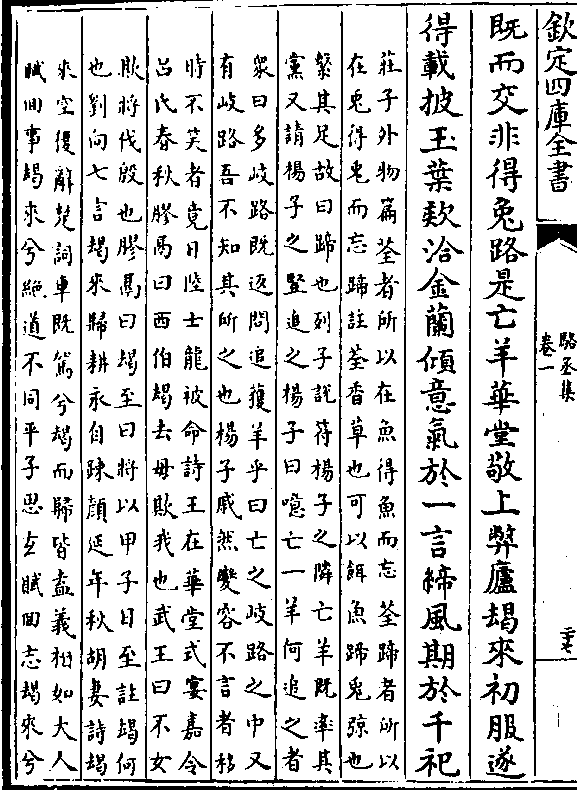 欽定四庫全書
駱丞集
卷一
既而交非得兔路是亡羊華堂敬上弊廬朅來初服遂
得載披玉葉欵洽金蘭傾意氣於一言締風期於千祀
莊子外物篇荃者所以在魚得魚而忘荃蹄者所以
在兔得兔而忘蹄註荃香草也可以餌魚蹄兔弶也
繫其足故曰蹄也列子說符楊子之隣亡羊既率其
黨又請楊子之豎追之楊子曰噫亡一羊何追之者
衆曰多岐路既返問追獲羊乎曰亡之岐路之中又
有岐路吾不知其所之也楊子戚然變容不言者移
時不笑者竟日陸士龍被命詩王在華堂式宴嘉令
呂氏春秋膠鬲曰西伯朅去毋欺我也武王曰不女
欺將伐殷也膠鬲曰朅至曰將以甲子日至註朅何
也劉向七言朅來歸耕永自疎顔延年秋胡妻詩朅
來空復辭楚詞車既駕兮朅而歸皆盍義相如大人
賦囬事朅來兮絶道不同平子思玄賦囬志朅來兮